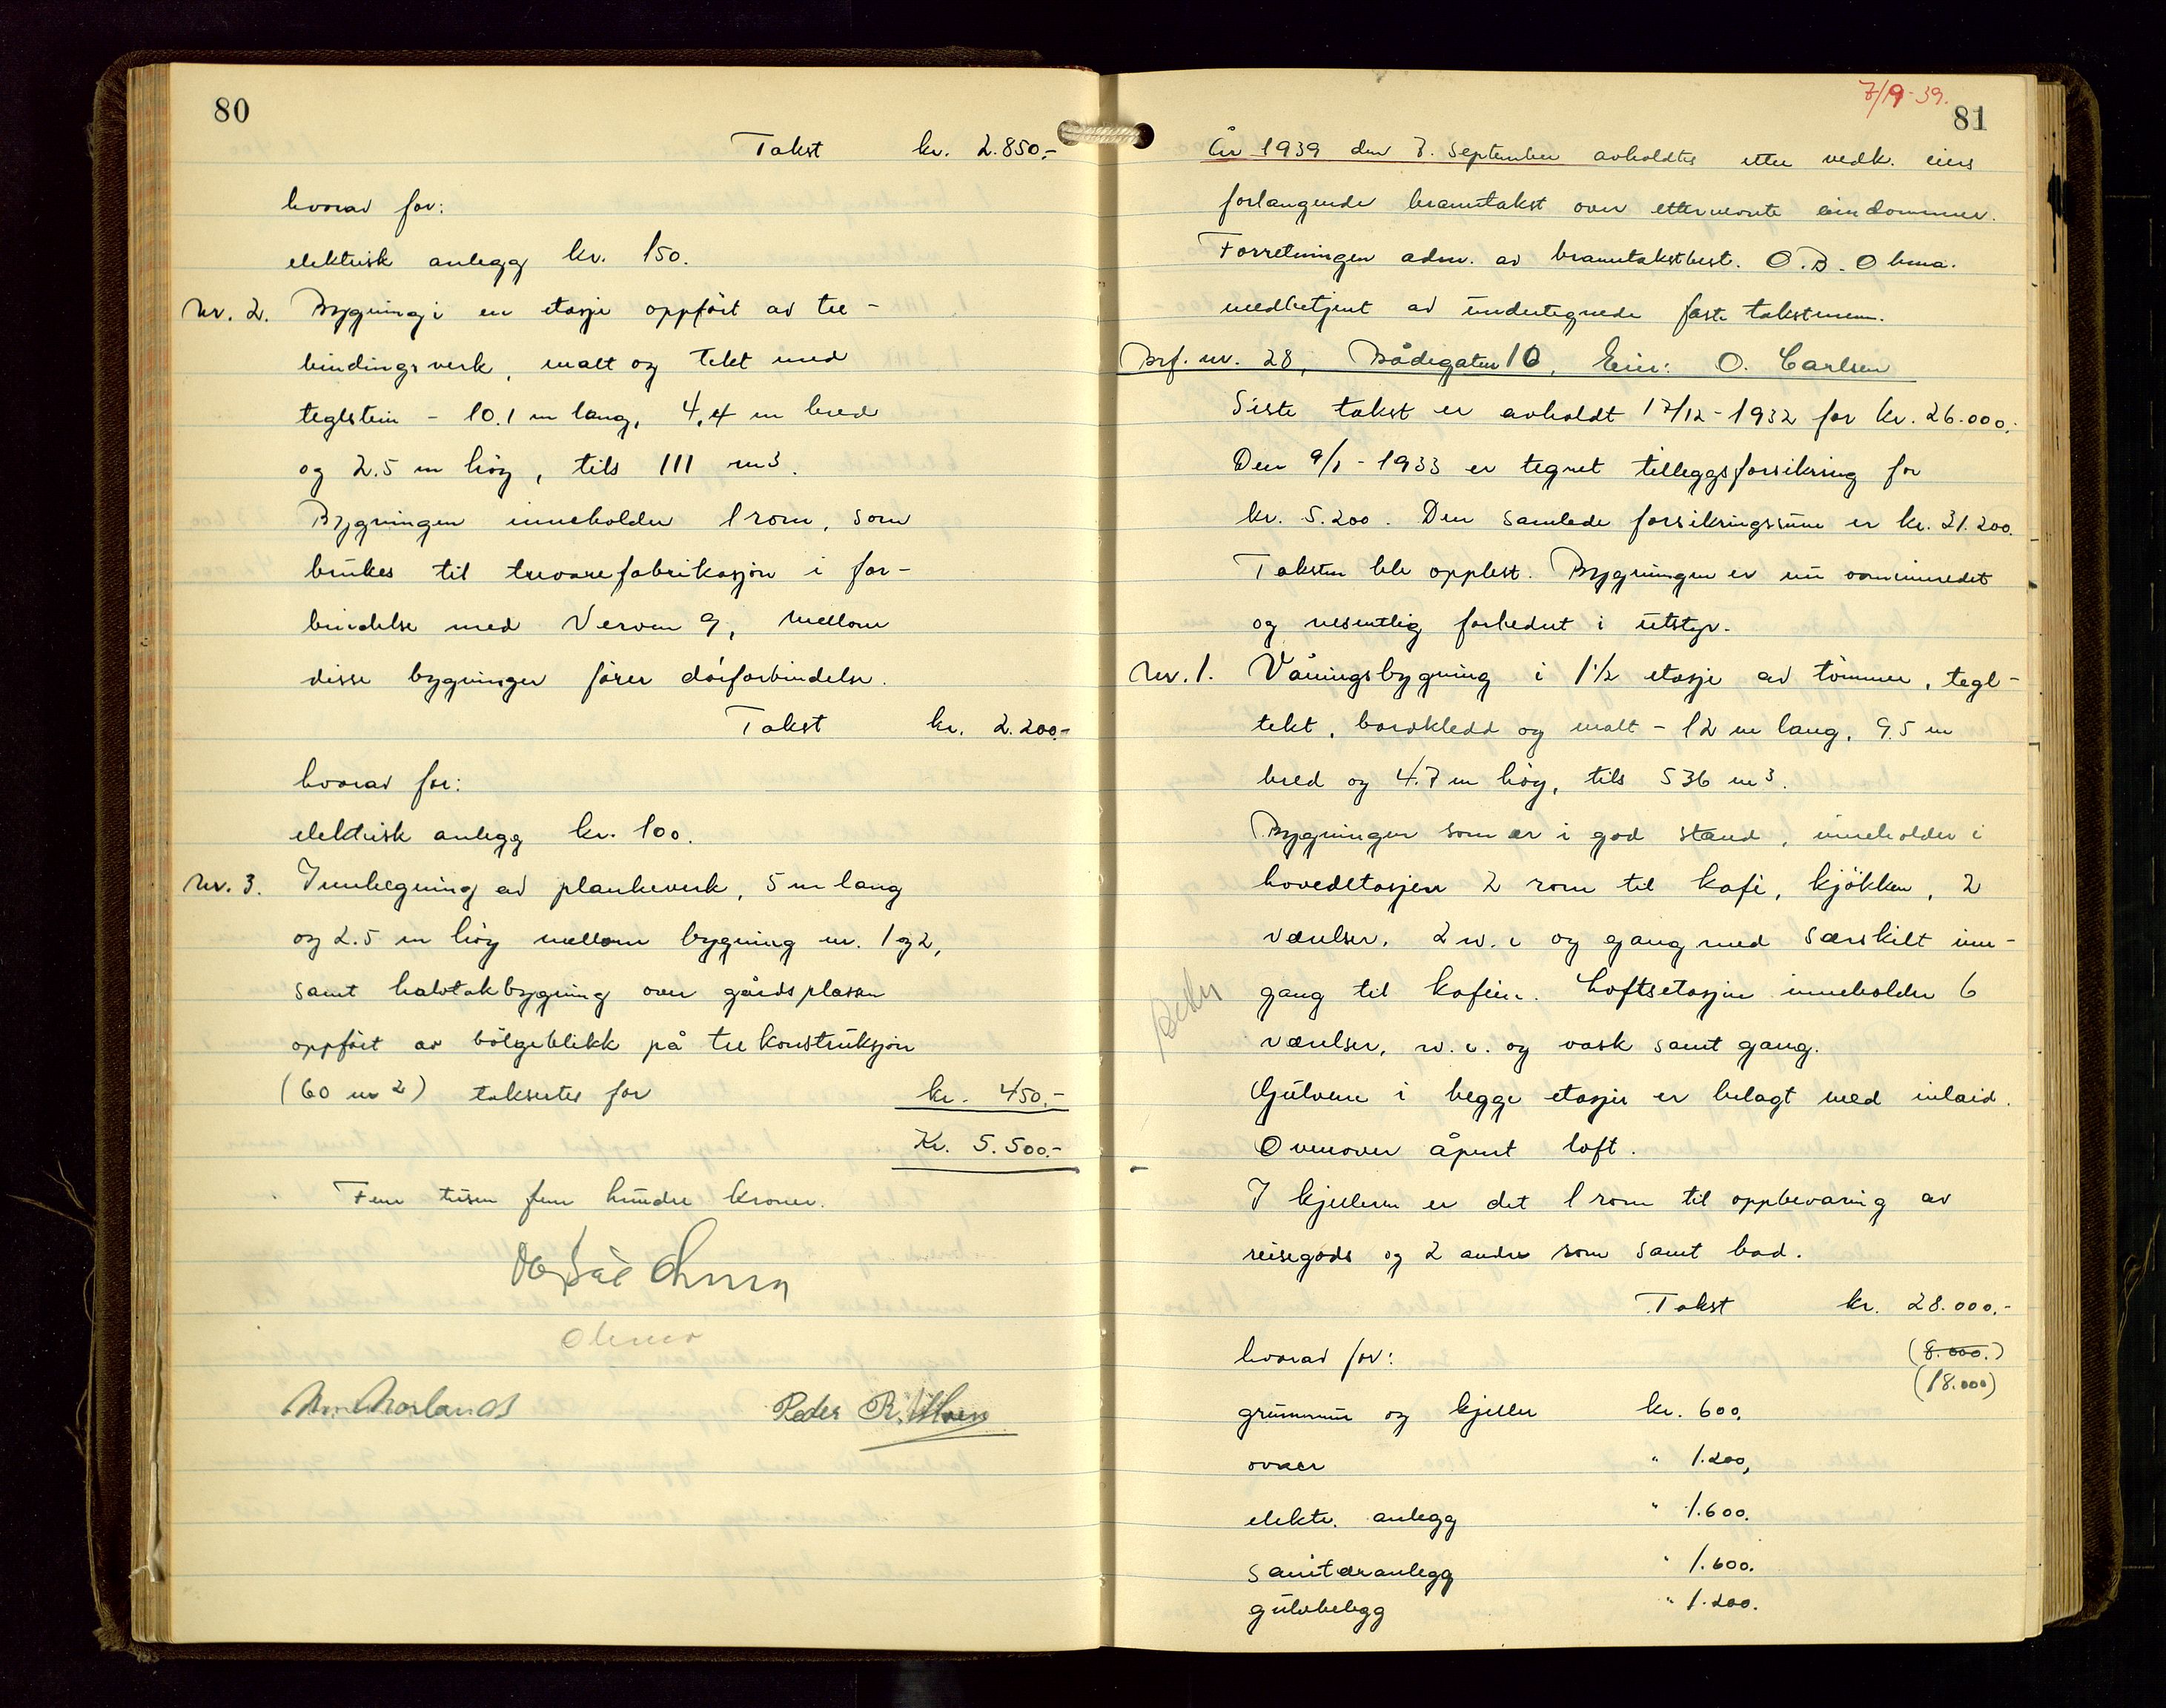 80
Takst kr. 2.850.-
hvorav for:
elektrisk anlegg kr. 150.
Nr. 2. Bygning i en etasje oppført av tre-
bindingsverk, malt og tekt med
teglstein - 10.1 m lang, 4,4 m bred
og 2.5 m høy, tils 111 m3.
Bygningen inneholder 1 rom, som
brukes til trevarefabrikasjon i for-
bindelse med Verven 9, mellom
disse bygninger fører dørforbindelse.
Takst kr. 2.200.-
hvorav for:
elektrisk anlegg kr. 100.
Nr. 3. Innhegning av plankeverk, 5 m lang
og 2.5 m høy mellom bygning nr. 1 og 2,
samt halvtakbygning over gårdsplassen
oppført av bølgeblikk på trekonstruksjon
(60 m2) takseres for kr. 450.-
Kr. 5.500.-
Fem tusen fem hundre kroner.
Ohma
Peder R.
7/9-39.
81
År 1939 den 7. September avholdtes etter vedk. eiers
forlangende branntakst over etternevnte eiendommer.
Forretningen adm. av branntakstbest. O.B. Ohma.
medbetjent av undertegnede faste takstmenn.
Brf. nr. 28, Bådegaten 10, Eier: O. Carlsen
Siste takst er avholdt 17/12-1932 for kr. 26.000.-
Den 9/1-1933 er tegnet tilleggsforsikring for
kr. 5.200. Den samlede forsikringssum er kr. 31.200.
Taksten ble opplest. Bygningen er nu ominnredet
og vesentlig forbedret i utstyr.
Nr. 1. Våningsbygning i 1 1/2 etasje av tømmer, tegl-
tekt, bordkledd og malt - 12 m lang, 9.5 m
bred og 4.7 m høy, tils 536 m3.
Bygningen som er i god stand, inneholder i
hovedetasjen 2 rom til kafe, kjøkken, 2
værelser, 2 w.c og gang med særskilt inn-
gang til kafeen. Loftsetasjen inneholder 6
værelser, w.c. og vask samt gang.
Gulvene i begge etasjer er belagt med inlaid.
Ovenover åpent loft.
I kjelleren er det 1 rom til oppbevaring av
reisegods og 2 andre rom samt bad.
Takst kr. 28.000.-
hvorav for: (8.000.)
(18.000)
grunnmur og kjeller kr. 600.
ovner " 1.200,
elektr. anlegg " 1.600.
sanitæranlegg " 1.600.
gulvbelegg " 1.200.